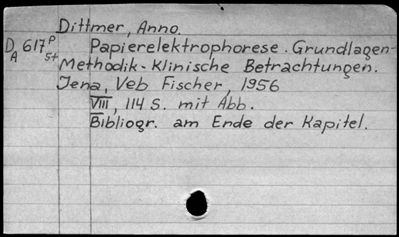 Dittmer, Anno.
D 617 P Papierelektrophorese. Grundlagen-
A St Methodik-Klinische Betrachtungen.
Jena, Veb Fischer, 1956
VIII, 114 S. mit Abb.
Bibliogr. am Ende der Kapitel.